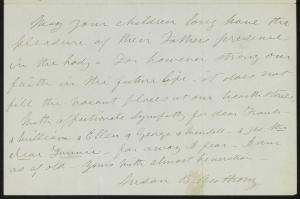 May your children long have the
pleasure of their Father's presence
in the body - For however strong our
faith in the future life - it does not
fill the vacant places at our hearth stones
With affectionate sympathy for dear Frank
& William & Ellen & George & yourself - & for the
dear Fannie - far away I fear - I am
as of old - yours with almost veneration -
Susan B. Anthony